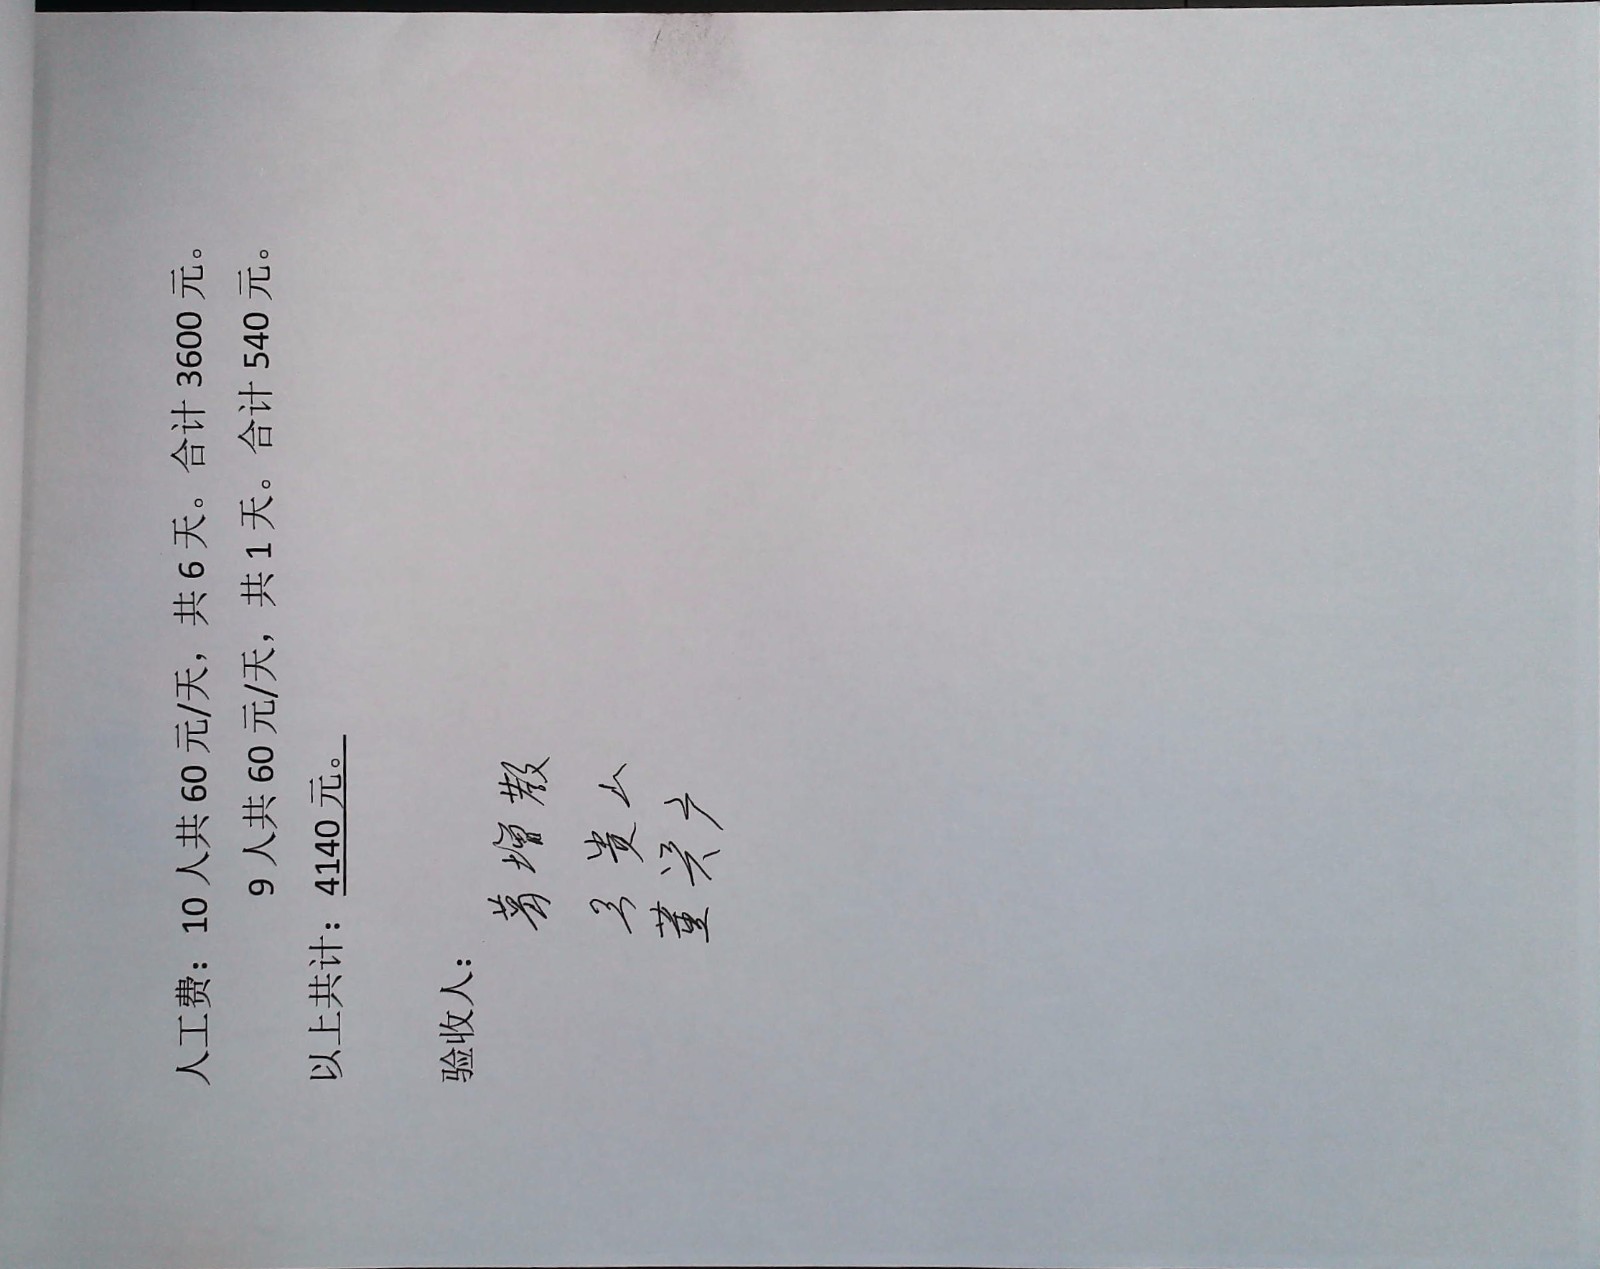 人工费：10人共60元/天，共6天。合计3600元。
9人共60元/天，共1天。合计540元。
以上共计：4140元。
验收人：
葛增
贵山
董兴广